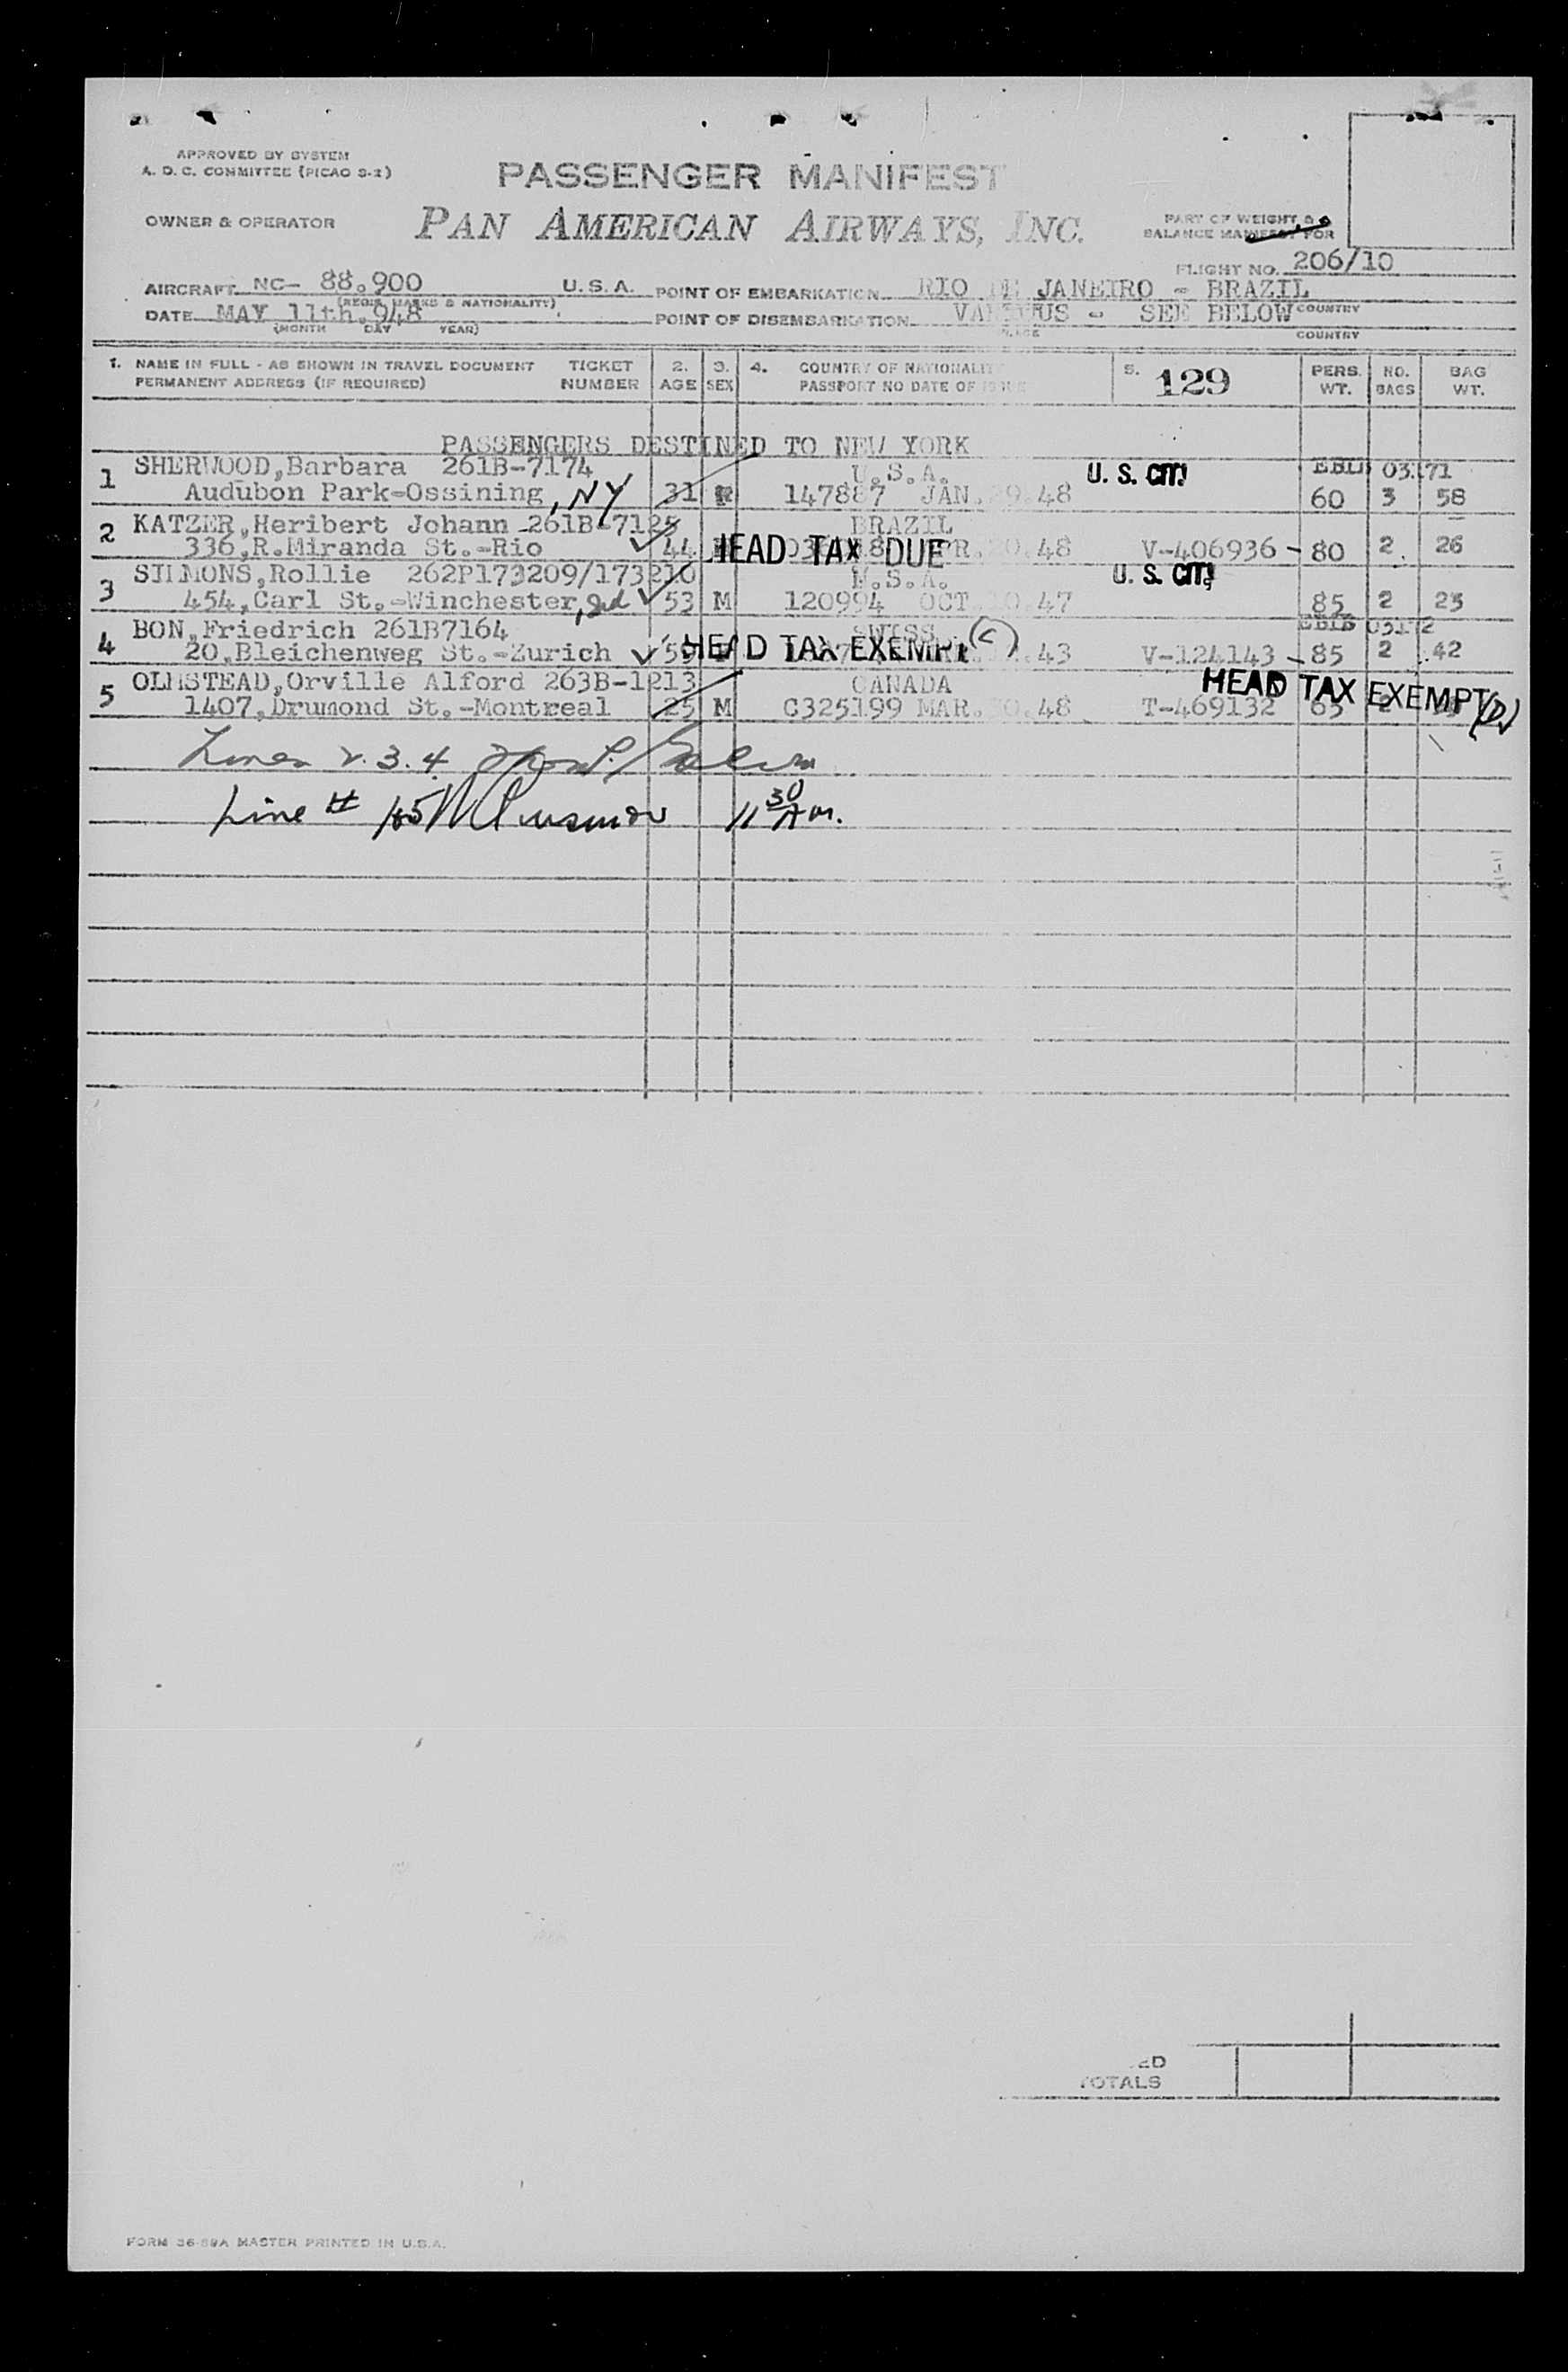 APPROVED BY SYSTEM
A. O. C. COMMITTEE (PICAO S-2)
PASSENGER MANIFEST
OWNER & OPERATOR PAN AMERICAN AIRWAYS, INC.
PART OF WEIGHT &
BALANCE MANIFEST FOR
FLIGHT NO. 206/10
AIRCRAFT NC- 88.900 U.S.A. POINT OF EMBARKATION RIO DE JANEIRO - BRAZIL
(REGIS. MARKS & NATIONALITY)
DATE MAY 11th.948 POINT OF DISEMBARKATION VARIOUS - SEE BELOW COUNTRY
(MONTH DAY YEAR) PLACE COUNTRY
1. NAME IN FULL - AS SHOWN IN TRAVEL DOCUMENT TICKET 2. 3. 4. COUNTRY OF NATIONALITY 5. 129 PERS. NO. BAG
PERMANENT ADDRESS (IF REQUIRED) NUMBER AGE SEX PASSPORT NO DATE OF ISSUE WT. BAGS WT.
PASSENGERS DESTINED TO NEW YORK
1 SHERWOOD,Barbara 261B-7174 U.S.A. U. S. CIT. 03171
Audubon Park-Ossining, NY 31 147887 JAN. 9.48 60 3 58
2 KATZER,Heribert Johann 261B-7125 BRAZIL
336,R.Miranda St.-Rio 44 HEAD TAX DUE .48 V-406936 - 80 2 26
3 SIMMONS,Rollie 262P173209/173210 U.S.A. U. S. CIT.
454,Carl St.-Winchester, Ind 53 M 120994 OCT 0.47 85 2 23
4 BON,Friedrich 261B7164 SWISS 03172
20,Bleichenweg St.-Zurich HEAD TAX EXEMPT (C) .43 V-124143 - 85 2 42
5 OLMSTEAD,Orville Alford 263B-1213 CANADA HEAD TAX EXEMPT (D)
1407,Drumond St.-Montreal 25 M C325199 MAR. 0.48 T-469132 65
Lines 2.3.4
Line # 1&5 11 30 AM.
TOTALS
FORM 36-89A MASTER PRINTED IN U.S.A.